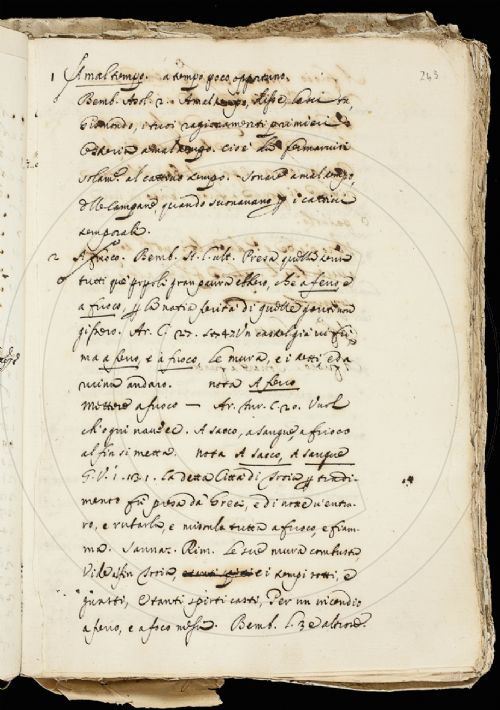 243
1 A mal tempo. a tempo poco opportuno.
Bemb. Asol. 2. A mal tempo, disse, lasci tu,
Gismondo, i tuoi ragionamenti primieri
a mal tempo. cioè fermarvivi
solam. al cattivo tempo. Sonare a mal tempo,
delle campane, quando suonavano i cattivi
temporali.
2 A fuoco. Bemb. St. l. ult. Presa quella terra
tutti que' popoli gran paura ebbero, che a ferro e
a fuoco, la natia ferità di quelle genti non
gissero. Ar. C. 27. St. 47 Un castel già vi fu
ma a ferro, e a fuoco, Le mura, e i tetti, e da
ruina andaro. nota A ferro
Mettere a fuoco — Ar. fur. C. 20. Vuol
ch'ogni nave A sacco, a sangue, a fuoco
al fin si metta. nota A sacco, A sangue
G. V. 1. La detta Città di Troia tradi-
mento fù presa da' Greci, e di notte v'entra-
ro, e rubarla, e misonla tutta a fuoco, e fiam-
ma. Sannaz. Rim. Le sue mura combusta
Vide alfin Troia, e i tempi rotti, e
guasti, E tanti spirti casti, Per un incendio
a ferro, e a foco messi. Bemb. l. 3. e altrove.